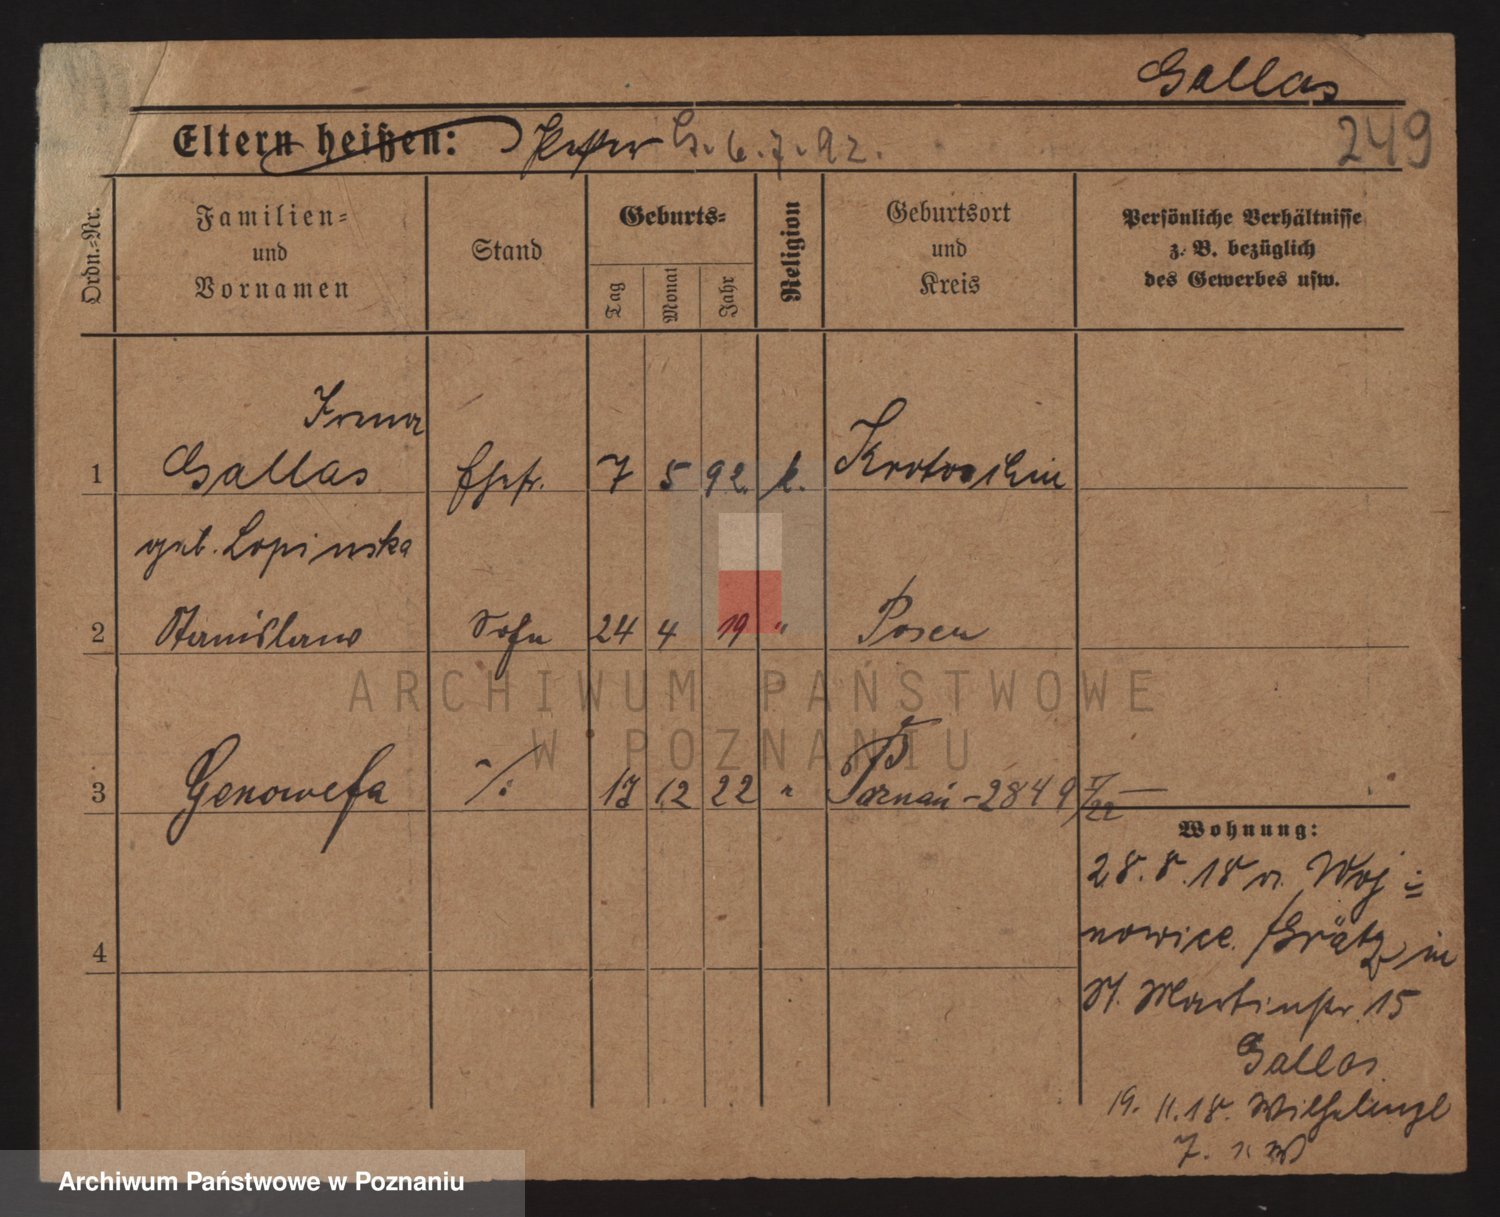 Gallas
249
Eltern heißen: G. 6.7.92.
Ordn.=Nr.
Familien=
und
Vornamen
Stand
Geburts=
Tag
Monat
Jahr
Religion
Geburtsort
und
Kreis
Persönliche Verhältnisse
z. B. bezüglich
des Gewerbes usw.
Irena
1 Gallas Ehefr. 7 5 92. k. Krotoschin
geb. Lopinska
2 Stanislaus Sohn 24 4 19 " Posen
3 Genowefa 17 12 22 " Poznań - 2849
Wohnung:
28.8.18 v. Woj=
nowice. Grätz in
4
St. Martinstr. 15
Gallas.
19. 11. 18.
7.
ARCHIWUM PAŃSTWOWE
W POZNANIU
Archiwum Państwowe w Poznaniu